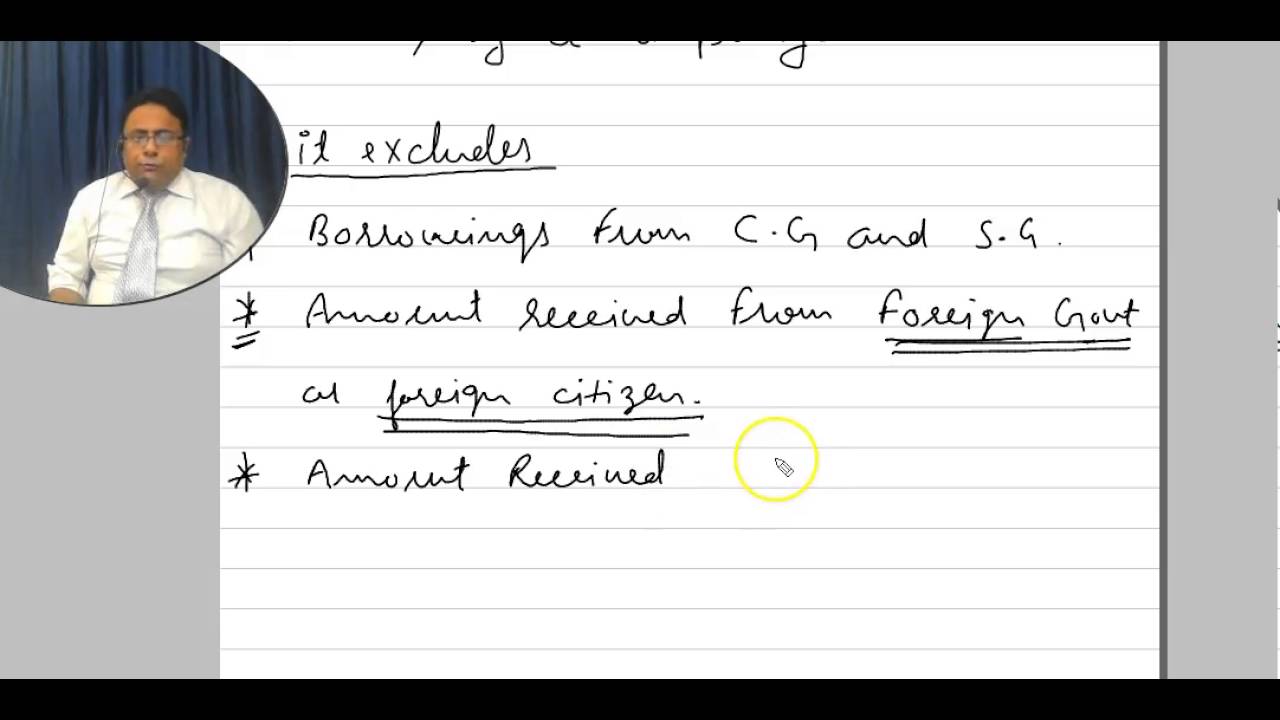 it excludes
Borrowings from C.G and S.G.
* Amount received from Foreign Govt
or foreign citizen.
* Amount Received